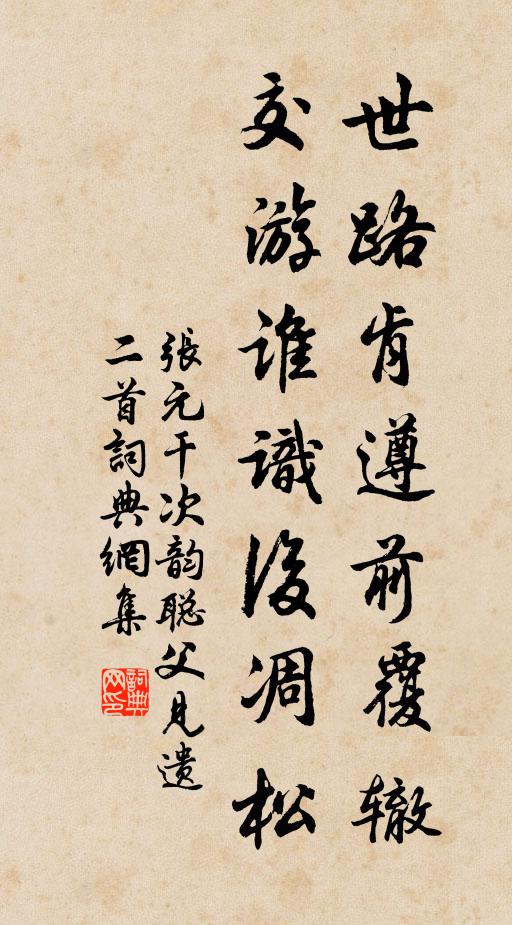 世路肯遵前覆辙
交游谁識後凋松
張元干次韵聪父见遗
二首詞典網集
詞典网印